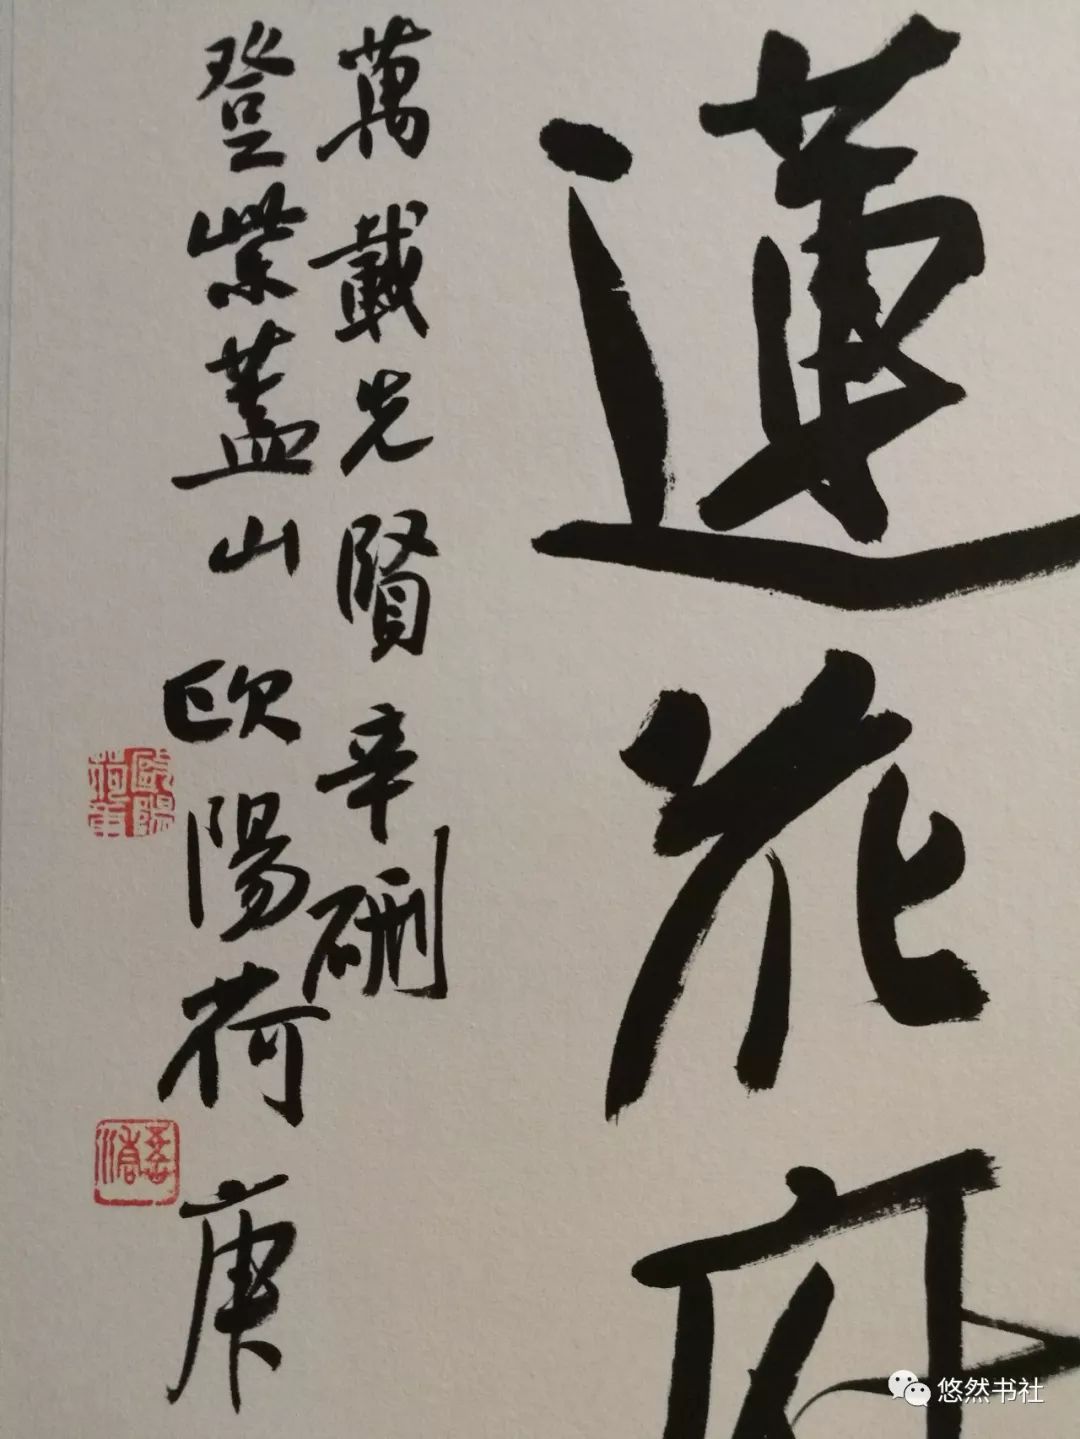 蓮花府
萬載先賢辛硎
登紫蓋山歐陽荷庚
歐陽荷庚
悠然书社